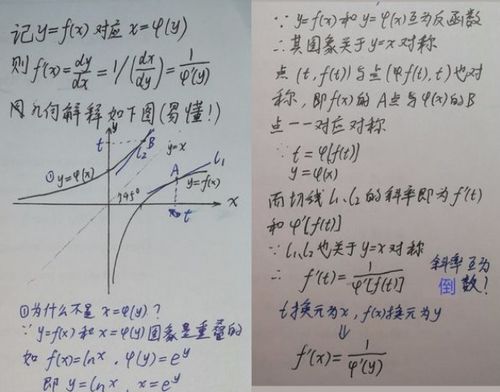 记 y=f(x) 对应 x=φ(y)
则 f'(x)=dy/dx=1/(dx/dy)=1/φ'(y)
用几何解释如下图(易懂!)
y
t
B
l₂
y=x
①y=φ(x)
A
l₁
y=f(x)
45°
x
t
①为什么不是 x=φ(y)?
∵y=f(x) 和 x=φ(y)图象是重叠的
如 f(x)=lnx, φ(y)=e^y
即 y=lnx, x=e^y
∵ y=f(x) 和 y=φ(x)互为反函数
∴其图象关于y=x对称
点(t, f(t))与点(f(t), t)也对
称, 即f(x)的A点与φ(x)的B
点一一对应对称
∵ t=φ[f(t)]
y=φ(x)
而切线l₁、l₂的斜率即为f'(t)
和φ'[f(t)]
∵ l₁、l₂也关于y=x对称
∴ f'(t)=1/φ'[f(t)]
斜率互为
倒数!
t换元为x, f(x)换元为y
⇓
f'(x)=1/φ'(y)